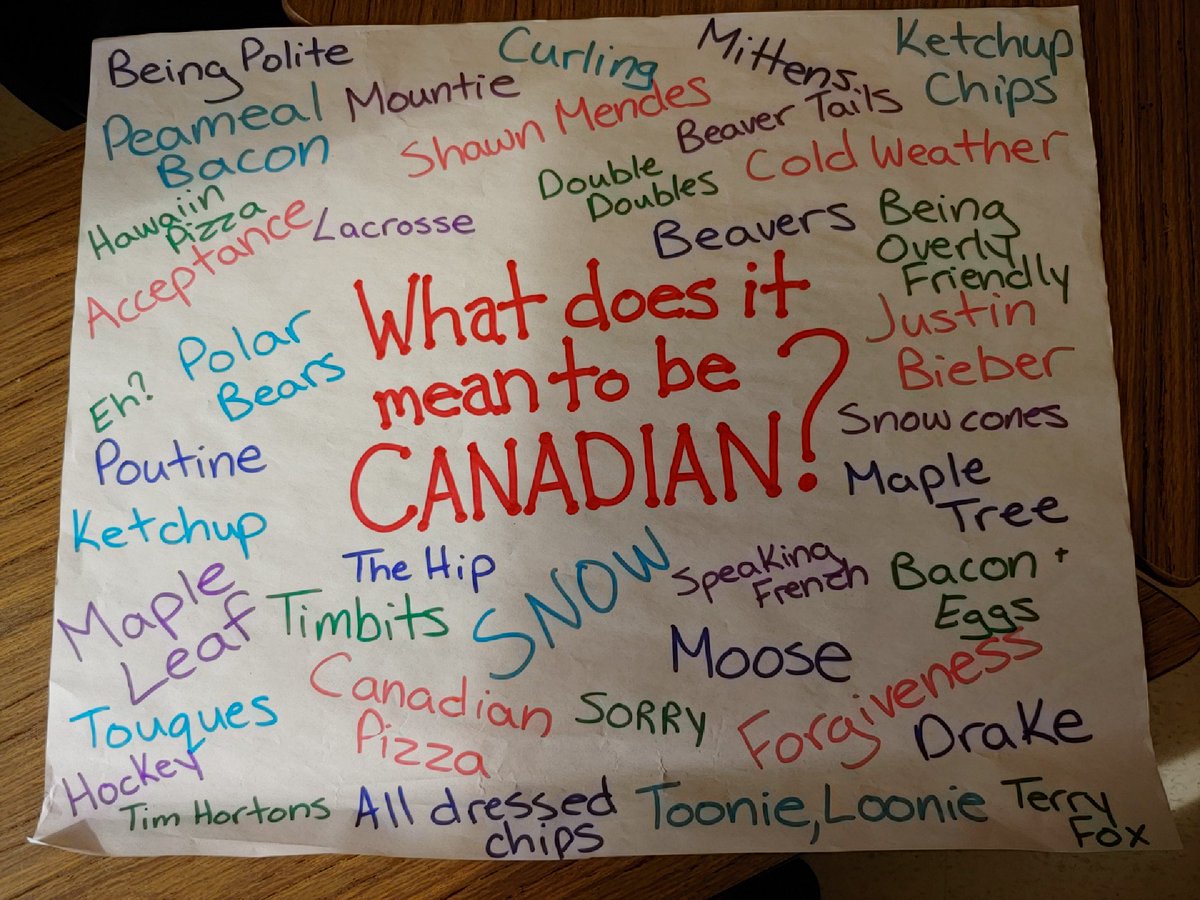 Being Polite
Curling
Mittens
Ketchup
Chips
Peameal
Bacon
Mountie
Shawn Mendes
Beaver Tails
Cold Weather
Hawaiin
Pizza
Acceptance
Lacrosse
Double
Doubles
Beavers
Being
Overly
Friendly
What does it
mean to be
CANADIAN?
Polar
Bears
Justin
Bieber
Eh?
Poutine
Snow cones
Maple
Tree
Ketchup
The Hip
SNOW
Speaking
French
Bacon +
Eggs
Maple
Leaf
Timbits
Moose
Touques
Canadian
Pizza
SORRY
Forgiveness
Drake
Hockey
Tim Hortons
All dressed
chips
Toonie, Loonie
Terry
Fox